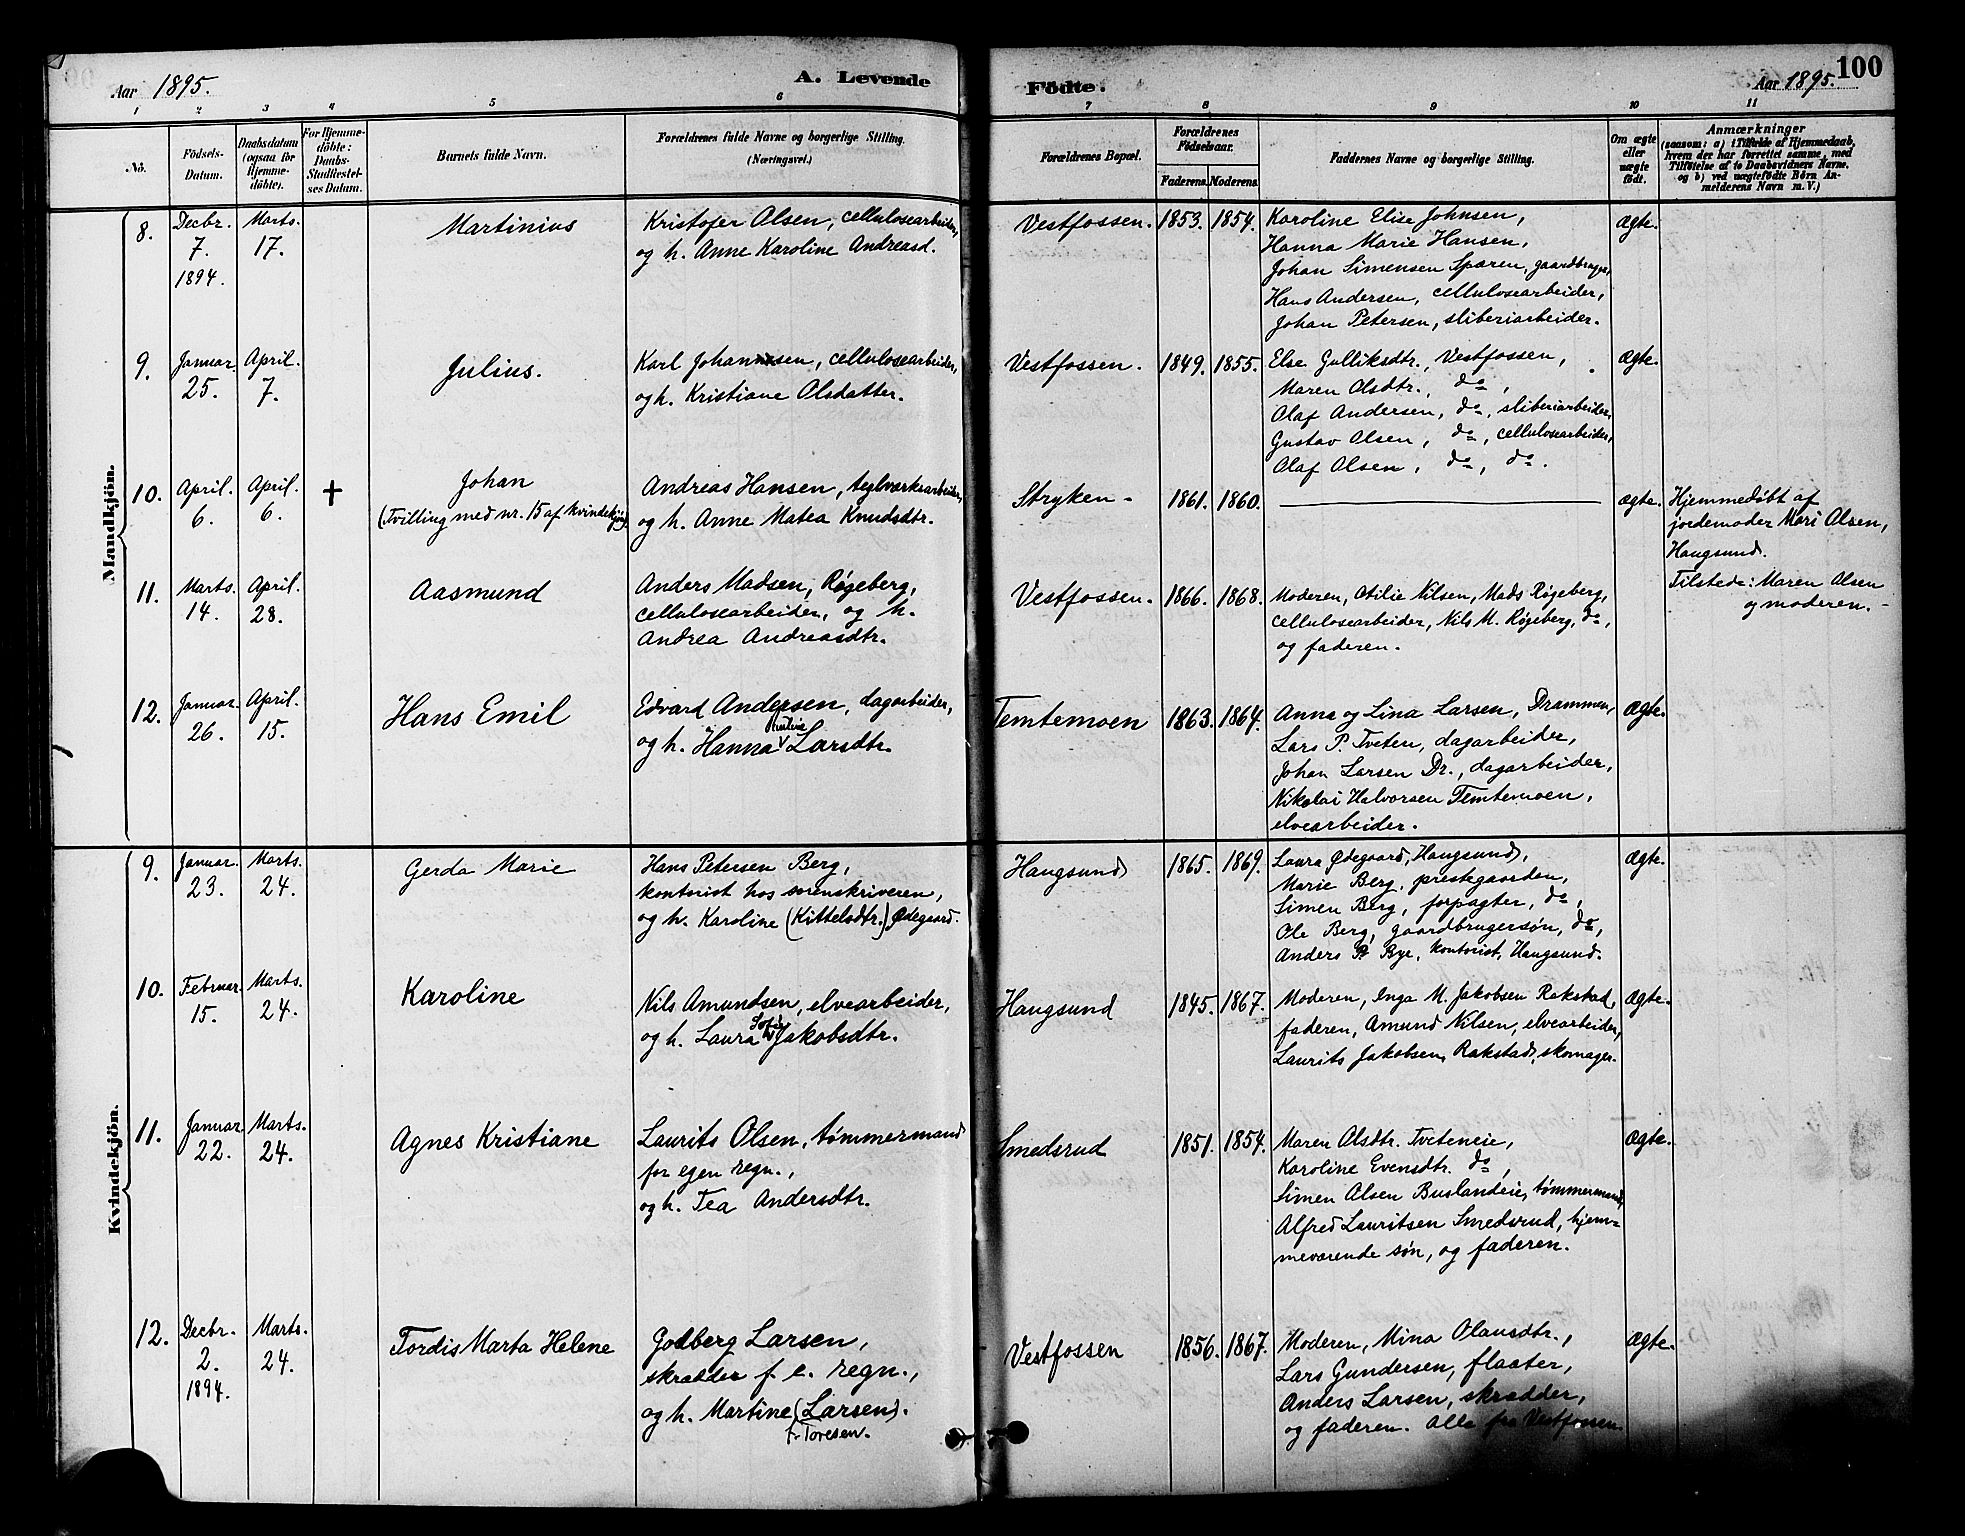 Aar 1895.
A. Levende
Fødte.
Aar 1895.
100
1 2 3 4 5 6 7 8 9 10 11
No.
Fødsels-Datum.
Daabsdatum (ogsaa for Hjemmedøbte).
For Hjemmedøbte: Daabs-Stadfæstelses Datum.
Barnets fulde Navn.
Forældrenes fulde Navne og borgerlige Stilling.
(Næringsvei.)
Forældrenes Bopæl.
Forældrenes Fødselsaar.
Faderens. Moderens.
Faddernes Navne og borgerlige Stilling.
Om ægte eller uægte født.
Anmærkninger
(saasom: a) i Tilfælde af Hjemmedaab, hvem der har forrettet samme, med Tilføielse af to Daabsvidners Navne, og b) ved uægtefødte Børn Anmelderens Navn m. V.)
Mandkjøn.
8. Decbr. 7. 1894. Marts. 17. Martinius
Kristofer Olsen, cellulosearbeider,
og h. Anne Karoline Andreasd.
Vestfossen. 1853. 1854.
Karoline Elise Johnsen,
Hanna Marie Hansen,
Johan Simensen Spæren, gaardbruger,
Hans Andersen, cellulosearbeider,
Johan Petersen, sliberiarbeider.
Ægte.
9. Januar 25. April. 7. Julius.
Karl Johansen, cellulosearbeider,
og h. Kristiane Olsdatter.
Vestfossen. 1849. 1855.
Else Gulliksdtr., Vestfossen,
Maren Olsdtr., do,
Olaf Andersen, do, sliberiarbeider,
Gustav Olsen, do, cellulosearbeider,
Olaf Olsen, do, do.
Ægte.
10. April. 6. April. 6. + Johan
(Tvilling med nr. 15 af kvindekjøn)
Andreas Hansen, teglværksarbeider,
og h. Anne Matea Knudsdtr.
Stryken - 1861. 1860.
Ægte.
Hjemmedøbt af
jordemoder Mari Olsen,
Haugsund.
Tilstede: Maren Olsen
og moderen. -
11. Marts. 14. April. 28. Aasmund
Anders Madsen, Røgeberg,
cellulosearbeider, og h.
Andrea Andreasdtr.
Vestfossen. 1866. 1868.
Moderen, Otilie Nilsen, Mads Røgeberg,
cellulosearbeider, Nils M. Røgeberg, do,
og faderen.
12. Januar. 26. April. 15. Hans Emil
Edvard Andersen, dagarbeider,
og h. Hanna Larsdtr.
Temtemoen 1863. 1864.
Anna og Lina Larsen, Drammen,
Lars P. Tveten, dagarbeider,
Johan Larsen Dr., dagarbeider,
Nikolai Halvorsen Temtemoen,
elvearbeider.
Ægte.
Kvindekjøn.
9. Januar. 23. Marts. 24. Gerda Marie
Hans Petersen Berg,
kontorist hos sorenskriveren,
og h. Karoline (Kittelsdtr.) Ødegaard.
Haugsund 1865. 1869.
Laura Ødegaard, Haugsund,
Marie Berg, prestegaarden,
Simen Berg, forpagter, do,
Ole Berg, gaardbrugersøn, do,
Anders Bye, kontorist, Haugsund.
Ægte.
10. Februar. 15. Marts. 24. Karoline
Nils Amundsen, elvearbeider,
og h. Laura Sofie Jakobsdtr.
Haugsund 1845. 1867.
Moderen, Inga M. Jakobsen Rakstad,
faderen, Amund Nilsen, elvearbeider,
Laurits Jakobsen, Rakstad, skomager.
Ægte.
11. Januar. 22. Marts. 24. Agnes Kristiane
Laurits Olsen, tømmermand
for egen regn.,
og h. Tea Andersdtr.
Smedsrud 1851. 1854.
Maren Olsdtr. Tveteneie,
Karoline Evensdtr. do,
Simen Olsen Buslandeie, tømmermand,
Alfred Lauritsen Smedsrud, hjem-
meværende søn, og faderen.
Ægte.
12. Decbr. 2. 1894. Marts. 24. Tordis Marta Helene
Godberg Larsen,
skrædder f. e. regn.,
og h. Martine (Larsen).
f. Toresen.
Vestfossen 1856. 1867.
Moderen, Mina Olausdtr.,
Lars Gundersen, flaater,
Anders Larsen, skrædder,
og faderen. Alle fra Vestfossen.
Ægte.